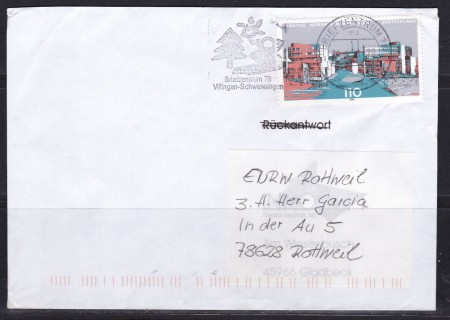 DEUTSCHLAND
BRIEFZENTRUM 78
110
Briefzentrum 78
Villingen-Schwenningen
Rückantwort
EURW Rottweil
z. H. Herr Garcia
In der Au 5
78628 Rottweil
45966 Gladbeck